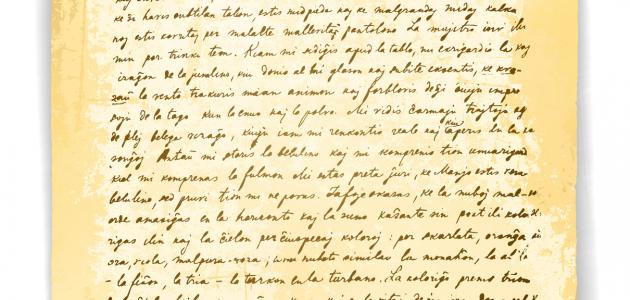 ke ŝi havis subtilan talion, estis nudpieda kaj ke malgrandaj nudaj kalka
noj estis kovritaj per malalte mallevitaj pantalono. La majstro
min por trinki teon. Kiam mi sidiĝis apud la tablo, mi ekrigardis la viz
aĝon de la junulino, kiu donis al mi glason kaj subite eksentis, ke kva-
zaŭ la vento trakuris mian animon kaj forblovis de ĝi ĉiujn impre
sojn de la tago kun la enuo kaj la polvo. Mi vidis ĉarmajn trajtojn
de plej belega vizaĝo, kiujn iam mi renkontis reale kaj kiu aperis en la so
nĝoj. Antaŭ mi staris la belulino kaj mi komprenis tion unuarigarde
kiel mi komprenas la fulmon. Mi estas preta ĵuri, ke Manjo estis vera
belulino, sed pruvi tion mi ne povas. Iafoje okazas, ke la nuboj mal-
orde amasiĝas en la horizonto kaj la suno kaŝante sin post ili kolo
rigas ilin kaj la ĉielon per ĉiuspecaj koloroj: per skarlata, oranĝa,
ora, viola, malpura-roza; unu nubeto similas la monaĥon, la alia
- la fiŝon, la tria - la turkon en la turbano. La koloriĝo prenis